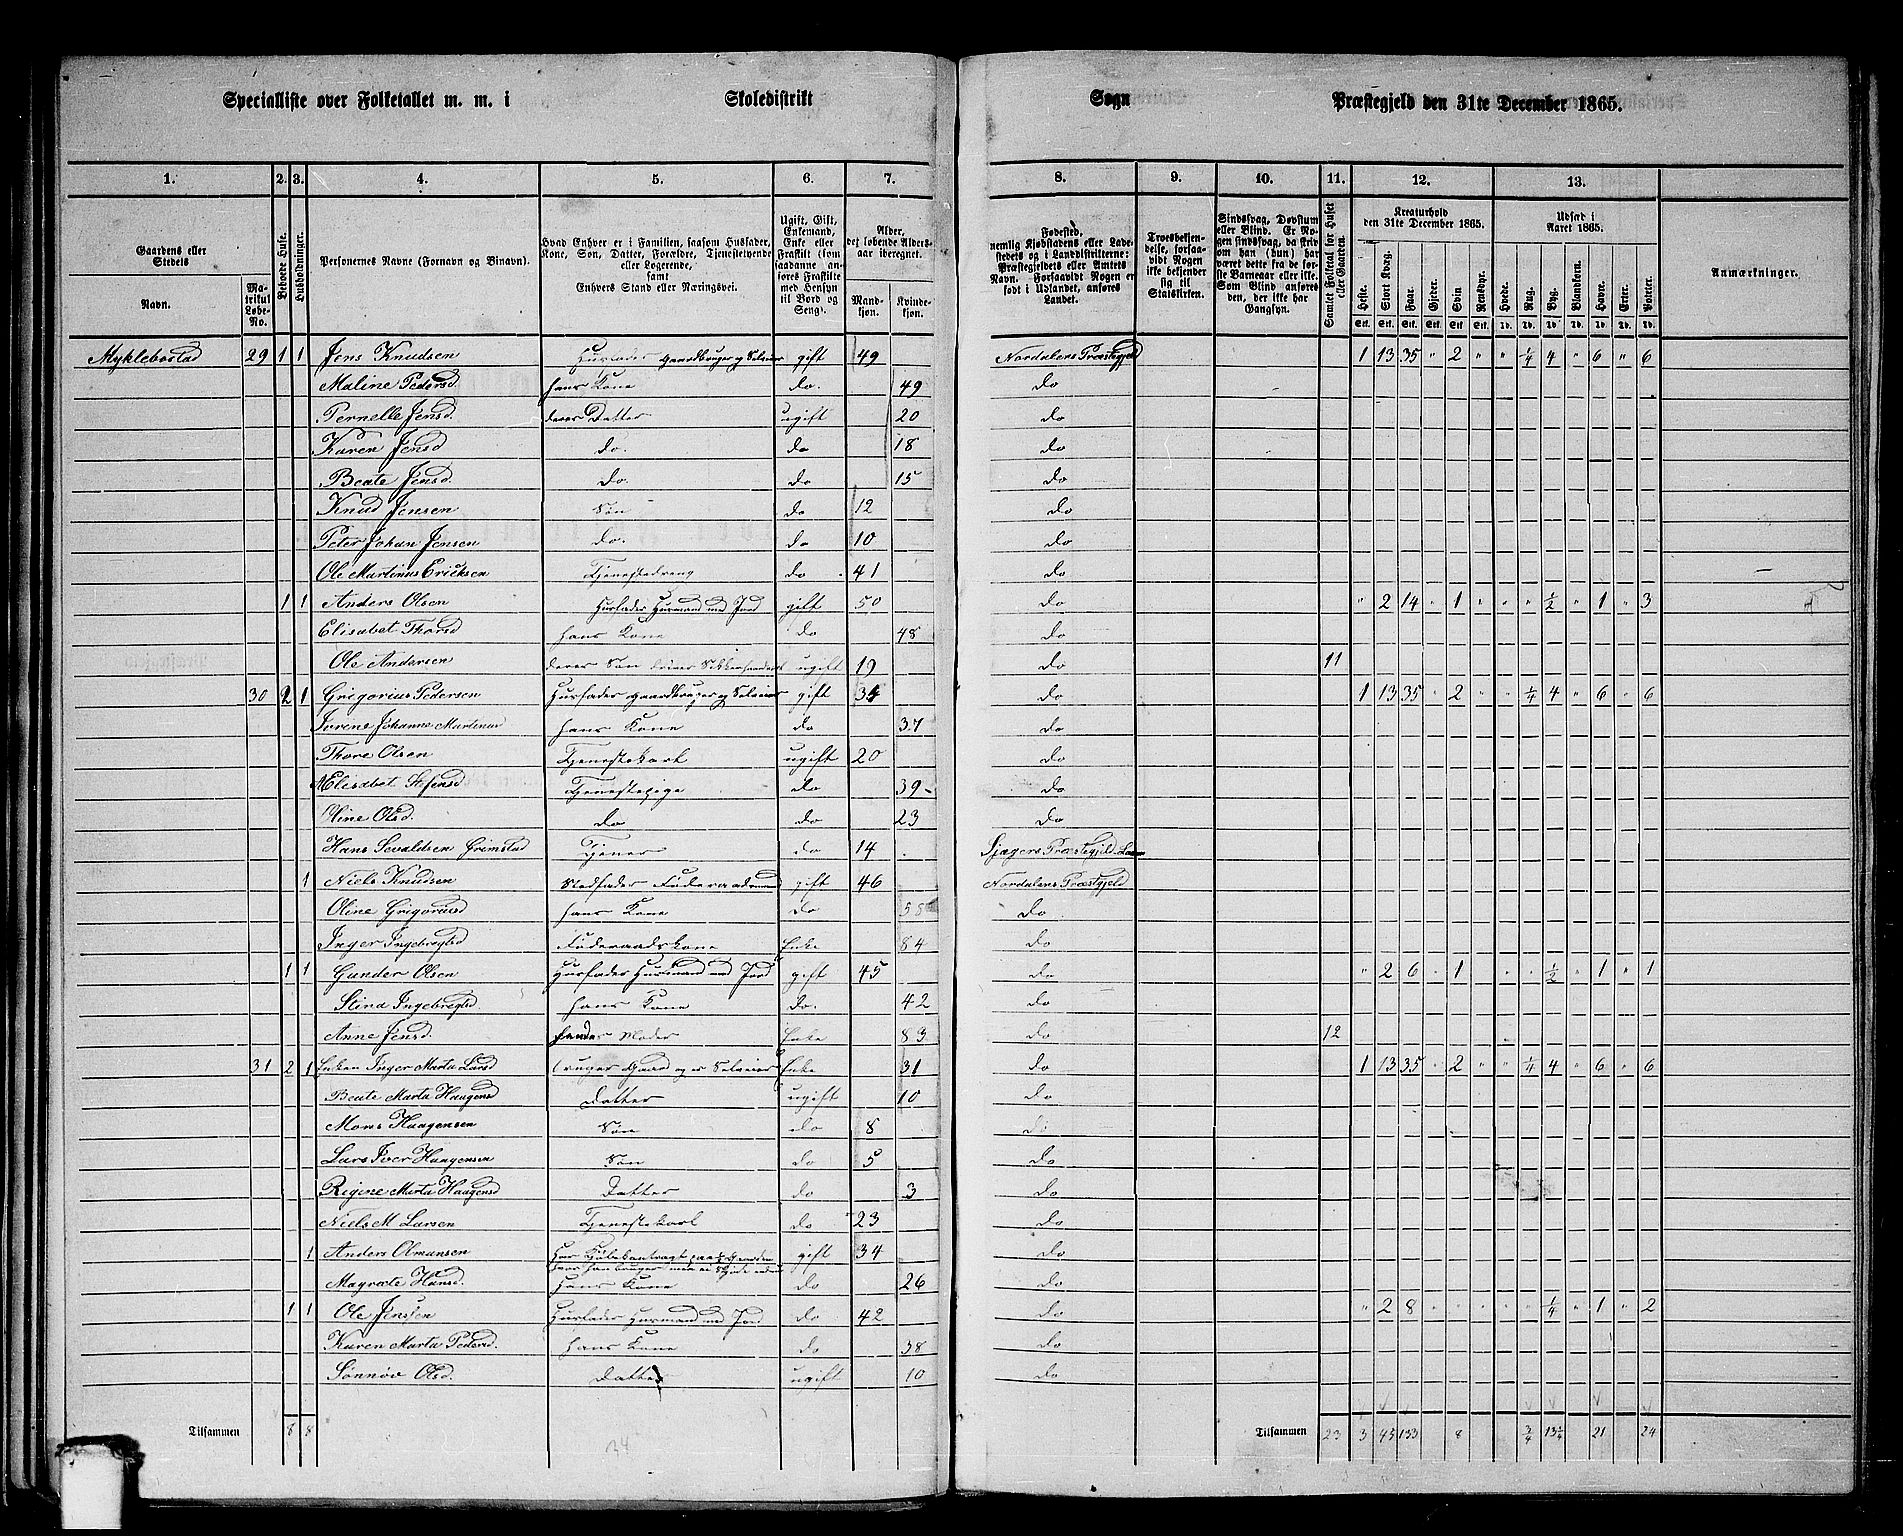 Specialliste over Folketallet m. m. i Skoledistrikt Sogn Præstegjeld den 31te December 1865.
1. 2. 3. 4. 5. 6. 7. 8. 9. 10. 11. 12. 13.
Gaardens eller Stedets
Navn.
Matrikul Løbe-No.
Beboede Huse.
Husholdninger.
Personernes Navne (Fornavn og Binavn).
Hvad Enhver er i Familien, saasom Husfader, Kone, Søn, Datter, Forældre, Tjenestetyende eller Logerende, samt Enhvers Stand eller Næringsvei.
Ugift, Gift, Enkemand, Enke eller Fraskilt (som saadanne anføres Fraskilte med Hensyn til Bord og Seng).
Alder, det løbende Aldersaar iberegnet.
Mandkjøn. Kvindekjøn.
Fødested, nemlig Kjøbstadens eller Ladestedets og i Landdistrikterne: Præstegjeldets eller Amtets Navn. Forsaavidt Nogen er født i Udlandet, anføres Landet.
Troesbekjendelse, forsaavidt Nogen ikke bekjender sig til Statskirken.
Sindssvag, Døvstum eller Blind. Er Nogen sindssvag, da skriv om han (hun) har været dette fra de første Barneaar eller ikke. Som Blind anføres den, der ikke har Gangsyn.
Samlet Folketal for Huset eller Gaarden.
Kreaturhold den 31te December 1865.
Heste. Stort Kvæg. Faar. Gjeder. Svin Rensdyr.
Udsæd i Aaret 1865.
Hvede. Rug. Byg. Blandkorn. Havre. Erter. Poteter.
Anmærkninger.
Myklebostad 29 1 1 Jens Knudsen Husfader Gaardbruger og Selveier gift 49 Nordalens Præstegjeld 1 13 35 " 2 " " 1/4 4 " 6 " 6
Maline Pedersd. hans Kone do. 49 do
Pernelle Jensd. deres Datter ugift 20 do
Karen Jensd do. do 18 do
Beate Jensd. do. do 15 do
Knud Jensen Søn do 12 do
Peter Johan Jensen do. do 10 do
Ole Martinus Ericksen Tjenestedreng do 41 do
1 1 Anders Olsen Husfader Husmand med Jord gift 50 do " 2 14 " 1 " " " 1/2 " 1 " 3
Elisabet Thorsd hans Kone do 48 do
Ole Andersen deres Søn ugift 19 do 11
30 2 1 Gregorius Pedersen Husfader Gaardbruger og Selveier gift 34 do 1 13 35 " 2 " " 1/4 4 " 6 " 6
Johanne hans Kone do 37 do
Thore Olsen Tjenestekarl ugift 20 do
Elisabet Tjenestepige do 39 do
Oline Olsd. do do 23 do
Hans Sevaldsen Grimstad Tjener do 14 Præstegjeld
1 Niels Knudsen Føderaadsmand gift 46 Nordalens Præstgjeld
Oline Grigoriusd hans Kone do 58 do
Inger Ingebregtsd Føderaadskone Enke 84 do
1 1 Gunder Olsen Husfader Husmand med Jord gift 45 do " 2 6 " 1 " " " 1/2 " 1 " 1
Stina Ingebregtsd. hans Kone do. 42 do
Anne Jensd. Moder Enke 83 do 12
31 2 1 Enken Inger Marta Larsd bruger Gaard og er Selveier Enke 31 do 1 13 35 " 2 " " 1/4 4 " 6 " 6
Beate Marta Haagensd Datter ugift 10 do
Mons Haagensen Søn do 8 do
Lars Iver Haagensen Søn do 5 do
Regine Marta Haagensd Datter do 3 do
Niels M Larsen Tjenestekarl do 23 do
1 Anders Olmunsen Har Kjøbekontragt paa 1/2 Gaarden gift 34 do
Magrete Hansd. Hans Kone do 26 do
1 1 Ole Jensen Husfader Husmand med Jord do 42 do " 2 8 " " " " " 1/4 " 1 " 2
Karen Marta Pedersd. hans Kone do 38 do
Sønnøv Olsd. Datter ugift 10 do
Tilsammen 8 8 34 Tilsammen 23 3 45 133 8 3/4 13 1/4 21 24